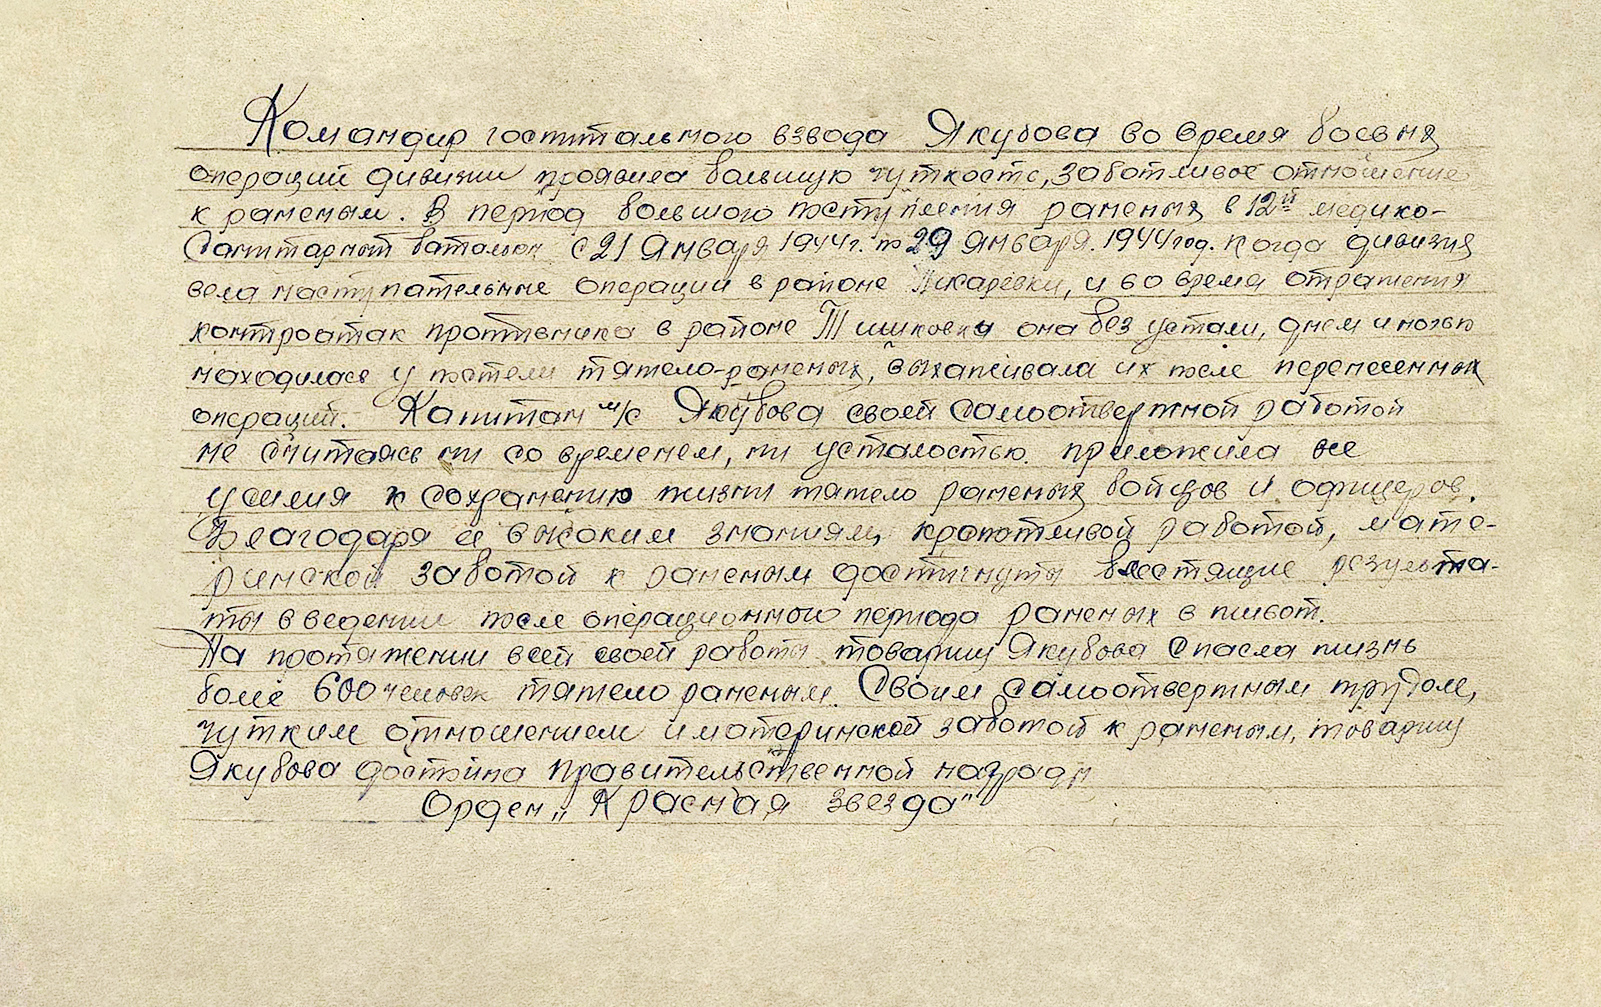 Командир госпитального взвода Якубова во время боевых
операций дивизии проявила большую чуткость, заботливое отношение
к раненым. В период большого поступления раненых в 12й медико-
Санитарный батальон с 21 Января 1944г. по 29 Января. 1944 год. когда дивизия
вела наступательные операции в районе Писаревки, и во время отражения
контратак противника в районе Тишковка она без устали, днем и ночью
находилась у постели тяжело-раненых, выхаживала их после перенесенных
операций. Капитан м/с Якубова своей Самоотверженной работой
не считаясь ни со временем, ни усталостью. приложила все
усилия к сохранению жизни тяжело раненых бойцов и офицеров.
Благодаря её высоким знаниям, кропотливой работой, мате-
ринской заботой к раненым достигнуты блестящие результа-
ты в ведении после операционного периода раненых в живот.
На протяжении всей своей работы товарищ Якубова Спасла жизнь
более 600 человек тяжело раненым. Своим самоотверженным трудом,
чутким отношением и материнской заботой к раненым, товарищ
Якубова достойна правительственной награды
Орден „Красная звезда"